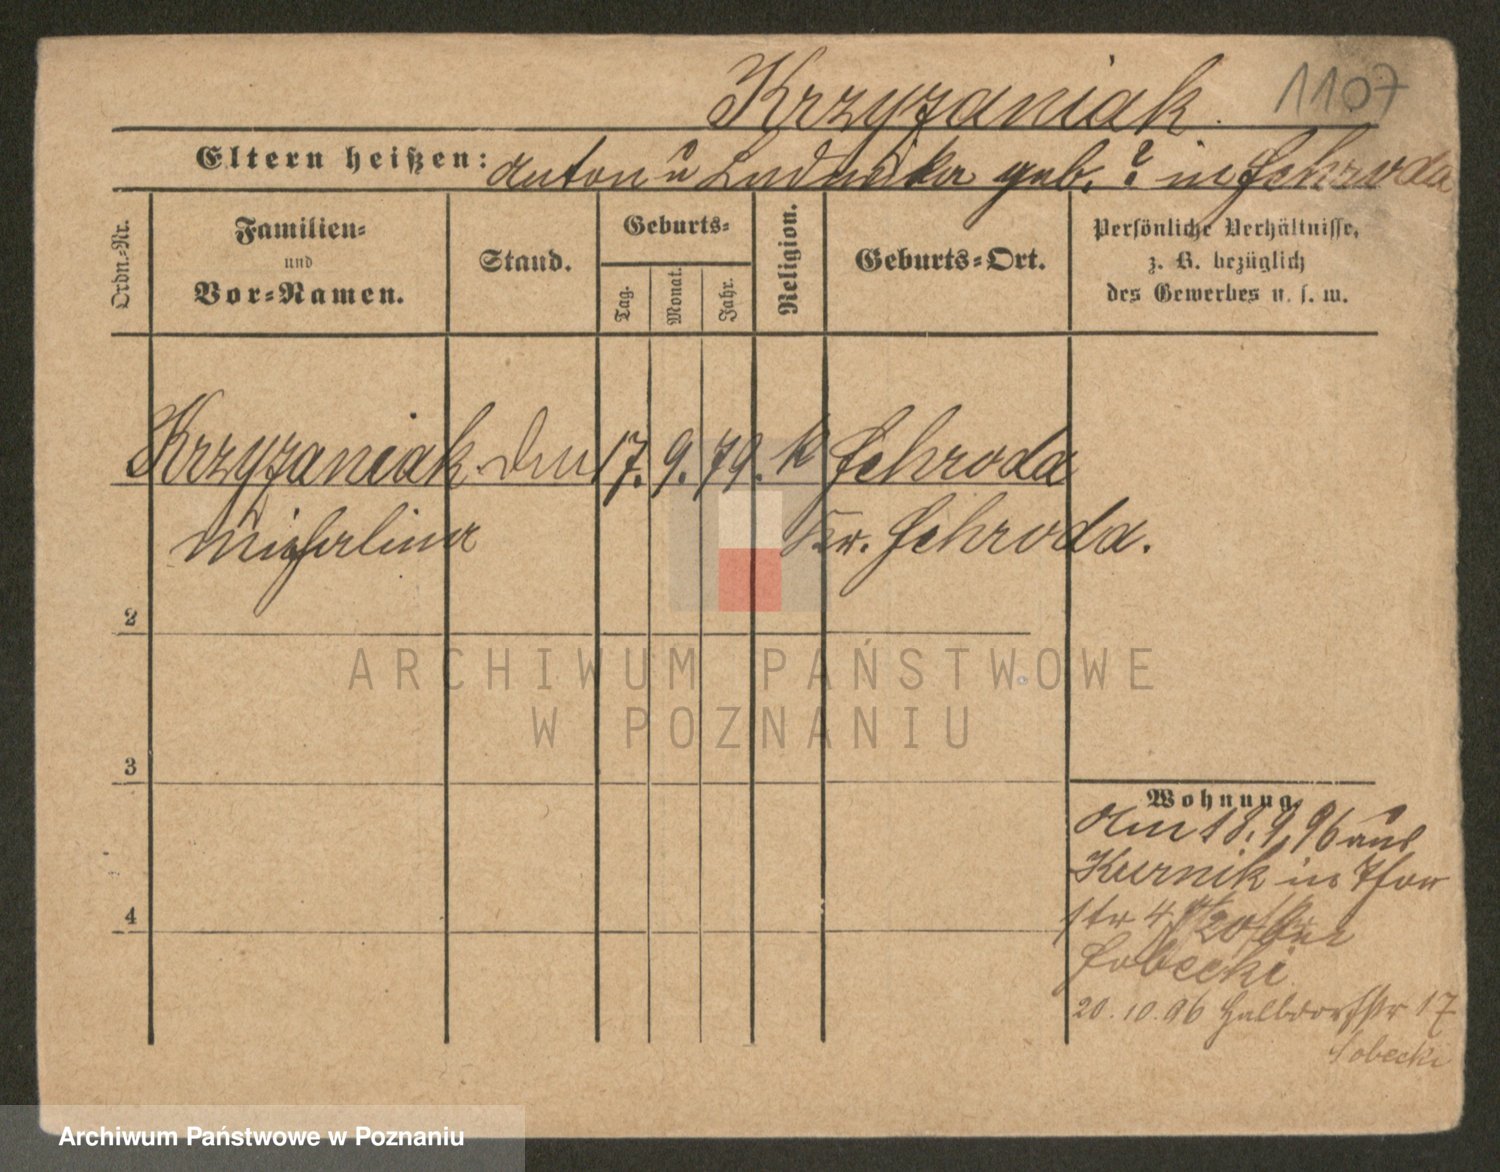 Krzyzaniak. 1107
Eltern heißen: Anton u Ludwika geb. ? in Schroda
Ordn.-Nr.
Familien- und Vor-Namen.
Stand.
Geburts-
Tag. Monat. Jahr.
Religion.
Geburts-Ort.
Persönliche Verhältnisse,
z. B. bezüglich
des Gewerbes u. s. w.
Krzyzaniak 17. 9. 79. k Schroda
Michalina Kr. Schroda.
2
3
4
Wohnung
Am 18.9.96 aus
Kurnik in
str 4 bei
Sobecki
20.10.96 Halbdorfstr 17
Sobecki
ARCHIWUM PAŃSTWOWE
W POZNANIU
Archiwum Państwowe w Poznaniu